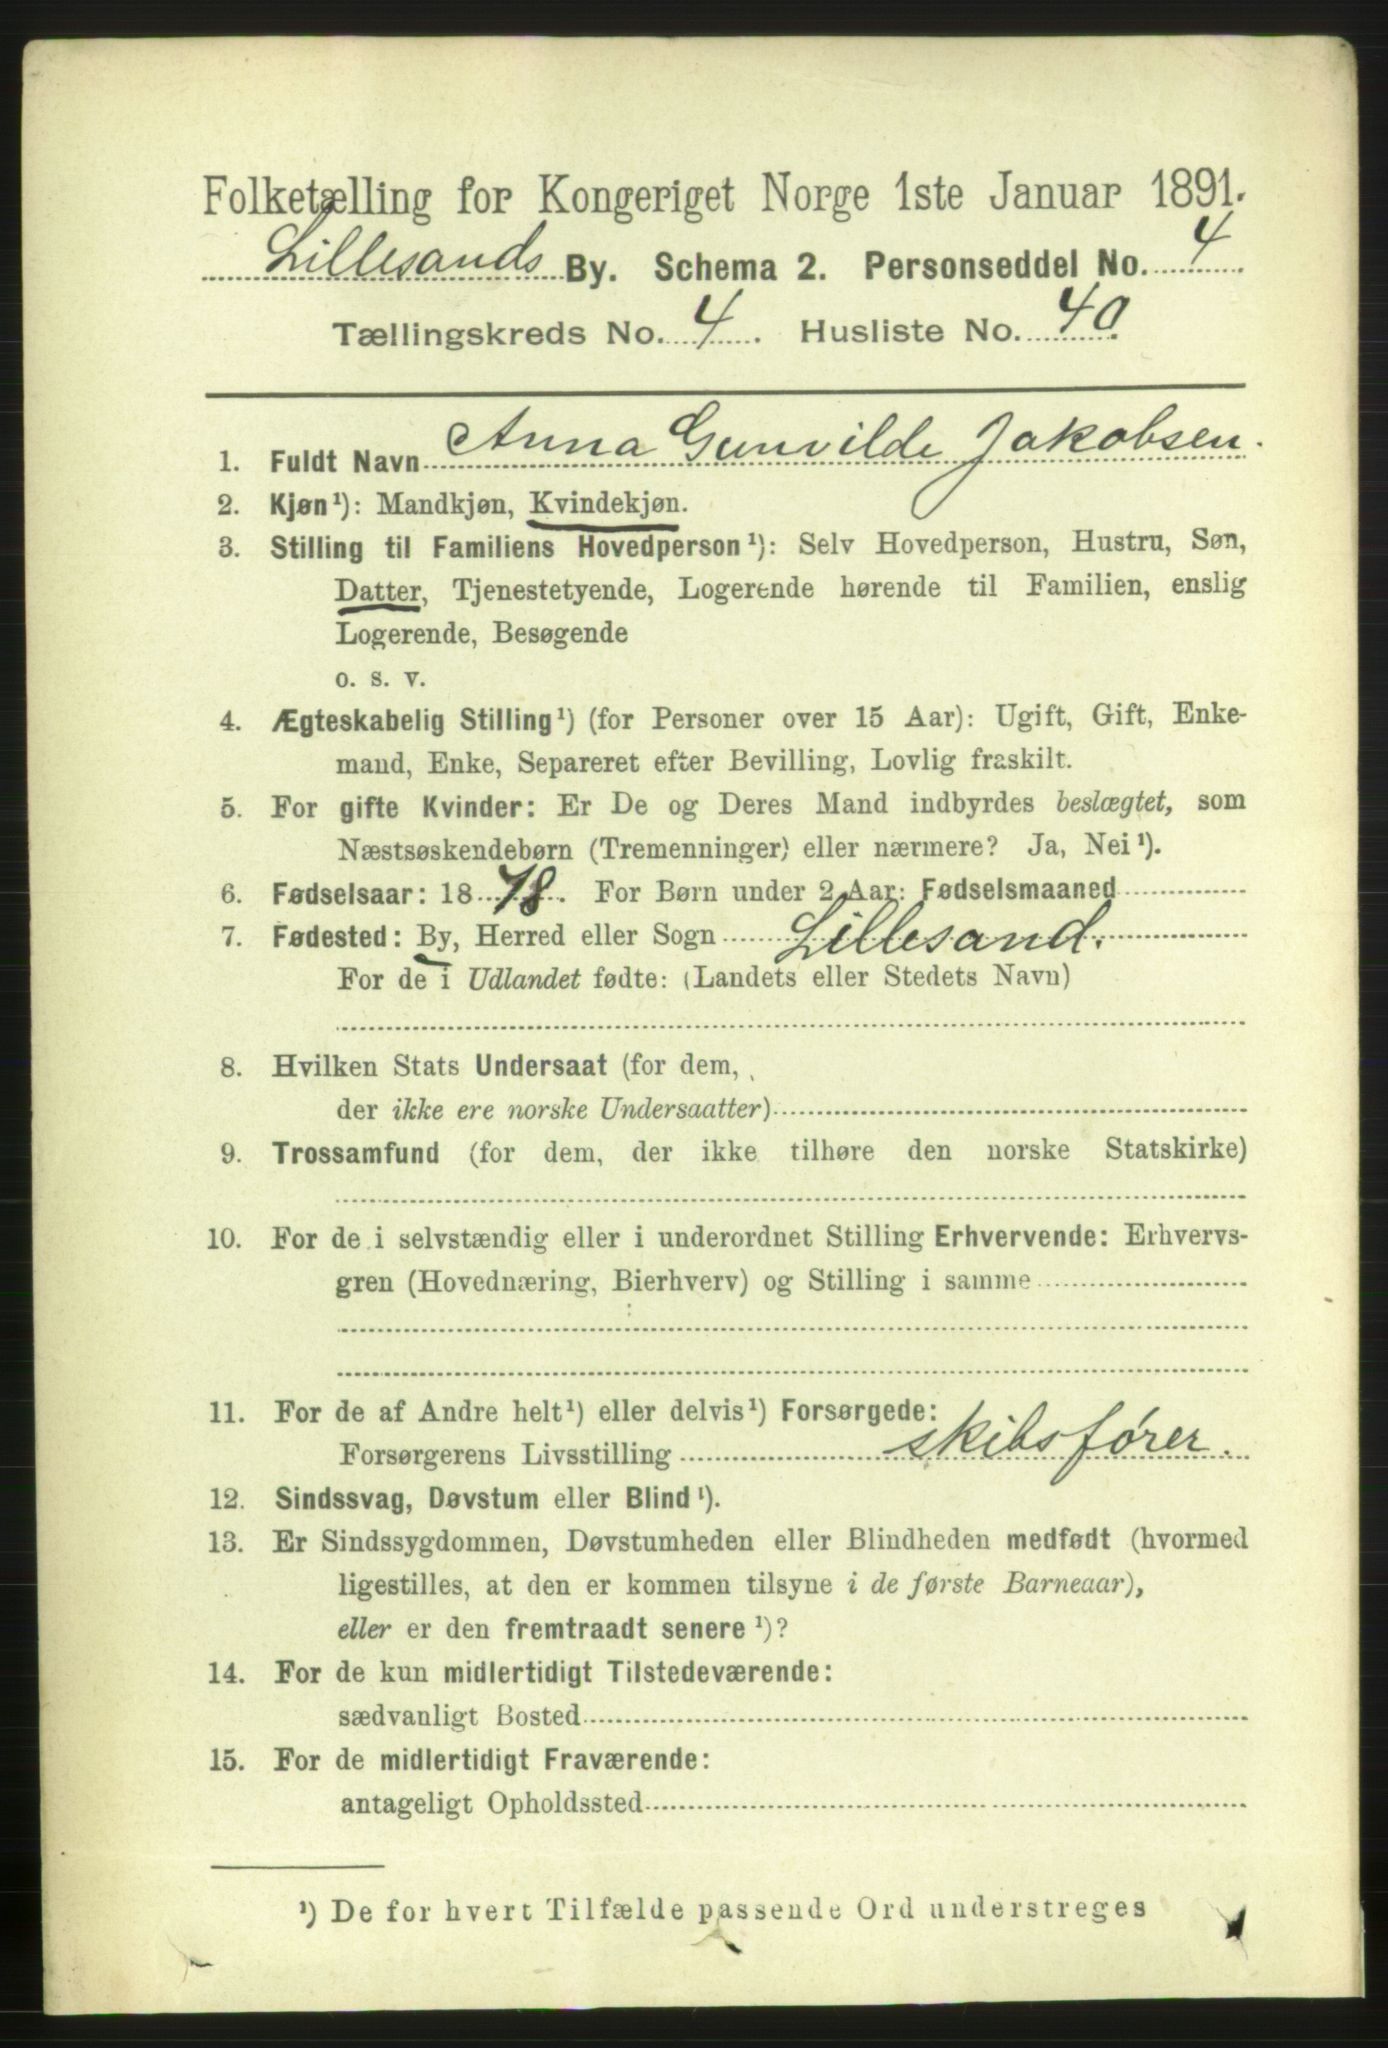 Folketælling for Kongeriget Norge 1ste Januar 1891.
Lillesands By. Schema 2. Personseddel No. 4
Tællingskreds No. 4. Husliste No. 40
1. Fuldt Navn Anna Gunvilde Jakobsen.
2. Kjøn¹): Mandkjøn, Kvindekjøn.
3. Stilling til Familiens Hovedperson¹): Selv Hovedperson, Hustru, Søn,
Datter, Tjenestetyende, Logerende hørende til Familien, enslig
Logerende, Besøgende
o. s. v.
4. Ægteskabelig Stilling¹) (for Personer over 15 Aar): Ugift, Gift, Enke-
mand, Enke, Separeret efter Bevilling, Lovlig fraskilt.
5. For gifte Kvinder: Er De og Deres Mand indbyrdes beslægtet, som
Næstsøskendebørn (Tremenninger) eller nærmere? Ja, Nei¹).
6. Fødselsaar: 1878. For Børn under 2 Aar: Fødselsmaaned
7. Fødested: By, Herred eller Sogn Lillesand.
For de i Udlandet fødte: (Landets eller Stedets Navn)
8. Hvilken Stats Undersaat (for dem,
der ikke ere norske Undersaatter)
9. Trossamfund (for dem, der ikke tilhøre den norske Statskirke)
10. For de i selvstændig eller i underordnet Stilling Erhvervende: Erhvervs-
gren (Hovednæring, Bierhverv) og Stilling i samme
11. For de af Andre helt¹) eller delvis¹) Forsørgede:
Forsørgerens Livsstilling skibsfører.
12. Sindssvag, Døvstum eller Blind¹).
13. Er Sindssygdommen, Døvstumheden eller Blindheden medfødt (hvormed
ligestilles, at den er kommen tilsyne i de første Barneaar),
eller er den fremtraadt senere¹)?
14. For de kun midlertidigt Tilstedeværende:
sædvanligt Bosted
15. For de midlertidigt Fraværende:
antageligt Opholdssted
¹) De for hvert Tilfælde passende Ord understreges